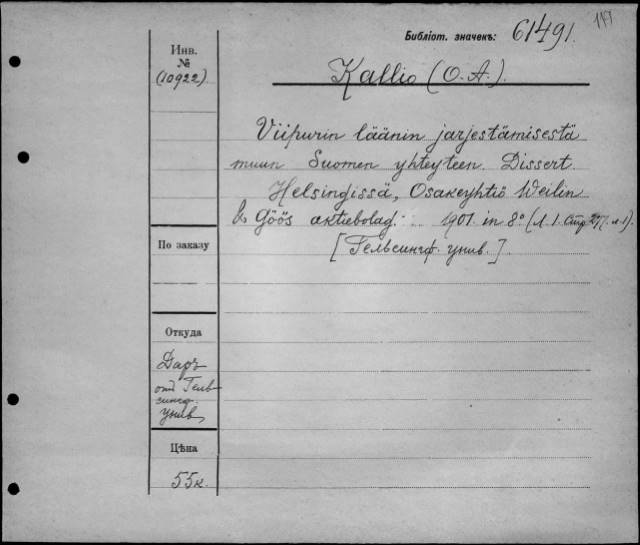 Библіот. значекъ: 61491.
Инв.
№
(10922)
Kallio (O. A.).
Viipurin läänin jarjestämisestä
muun Suomen yhteyteen. Dissert
Helsingissä, Osakeyhtiö Weilin
& Göös aktiebolag. 1901. in 8º.
[Гельсингф. унив.]
По заказу
Откуда
Даръ
отъ Гель-
сингф.
унив.
Цѣна
55к.